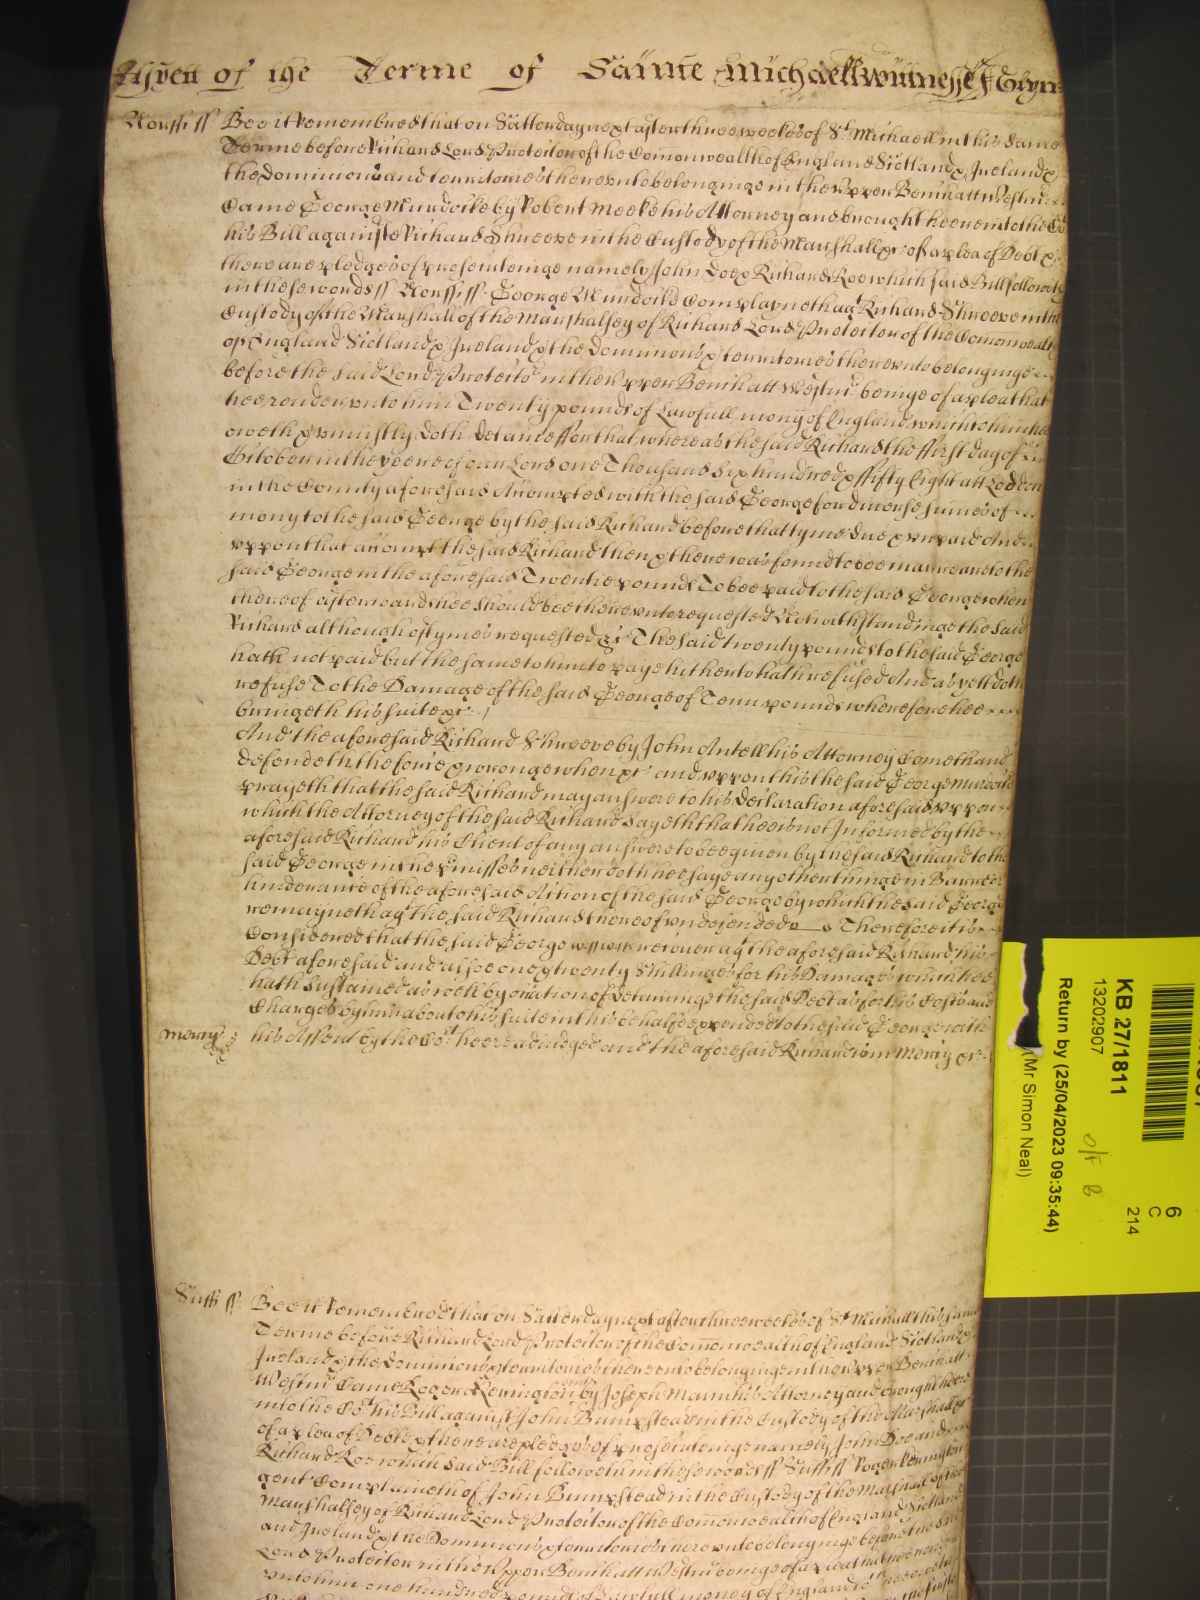 of the Terme of Sainte Michaell wittnesse J Glyn
Norff ss Bee it remembred that on Satterday next after three weekes of St Michaell in this same
Terme before Richard Lord Protector of the Comonwealth of England Scotland & Ireland &
the dominions and territories thereunto belonginge in the Upper Bench att Westmr
Came George Murdocke by Robert Meeke his Attorney and brought heere into the Co
his Bill againste Richard Shreeve in the Custody of the Marshall &c of a plea of Debt &
there are pledges of prosecuteinge namely John Doe & Richard Roe which said Bill followeth
in these words ss Norff ss George Murdocke Complayneth agt Richard Shreeve in the
Custody of the Marshall of the Marshalsey of Richard Lord Protector of the Comonwealth
of England Scotland & Ireland & the dominions & territories thereunto belonginge
before the said Lord Protector in the Upper Bench att Westmr beinge of a plea that
hee render unto him Twenty pounds of Lawfull mony of England which to him hee
oweth & uniustly doth detaine ffor that whereas the said Richard the ffirst day of
October in the yeere of our Lord one Thousand six hundred & ffifty Eight att Loddon
in the County aforesaid Accompted with the said George for diverse sumes of
mony to the said George by the said Richard before that tyme due & unpaid And
uppon that accompt the said Richard then & there was found to bee in arreare to the
said George in the aforesaid Twentie pounds To bee paid to the said George when
thereof afterwards hee should bee thereunto requested Notwithstandinge the said
Richard although oftymes requested &c The said twenty pounds to the said George
hath not paid but the same to him to paye hitherto hath refused And as yett doth
refuse To the Damage of the said George of Tenn pounds wherefore hee
bringeth his suite &c
And the aforesaid Richard Shreeve by John Antell his Attorney Cometh and
defendeth the force & wronge when &c and uppon this the said George Murdocke
prayeth that the said Richard may answere to his declaration aforesaid uppon
which the Attorney of the said Richard sayeth that hee is not Informed by the
aforesaid Richard his Client of any answere to bee given by the said Richard to the
said George in the p'misses neither doth hee saye any other thinge in Barr or
hinderance of the aforesaid Action of the said George by which the said George
remayneth agt the said Richard thereof undefended Therefore it is
Considered that the said George recover agt the aforesaid Richard his
Debt aforesaid and alsoe one & twenty shillinges for his Damages which hee
hath sustained as well by occation of detaininge the said Debt as for his Costs and
Charges by him about his suite in this behalfe expended to the said George with
mercy his Assent by the Co:rt heere adiudged and the aforesaid Richard is in Mercy &c
Suff ss Bee it remembred that on Satterday next after three weekes of St Michaell this same
Terme before Richard Lord Protector of the Comonwealth of England Scotland &
Ireland & the dominions & territories thereunto belonginge in the Upper Bench att
Westmr Came Roger Kerington gent by Joseph Mann his Attorney and brought heere
into the Cort his Bill against John Bumpstead in the Custody of the Marshall &c
of a plea of Debt & there are pledges of prosecuteinge namely John Doe and
Richard Roe which said Bill followeth in these words ss Suff ss Roger Kerington
gent Complaineth of John Bumpstead in the Custody of the Marshall of the
Marshalsey of Richard Lord Protector of the Comonwealth of England Scotland
and Ireland & the Dominions & territories thereunto belonginge before the said
Lord Protector in the Upper Bench att Westmr beinge of a plea that hee render
unto him one hundred pounds of Lawfull money of England
KB 27/1811
13202907
Return by (25/04/2023 09:35:44)
(Mr Simon Neal)
6
C
214